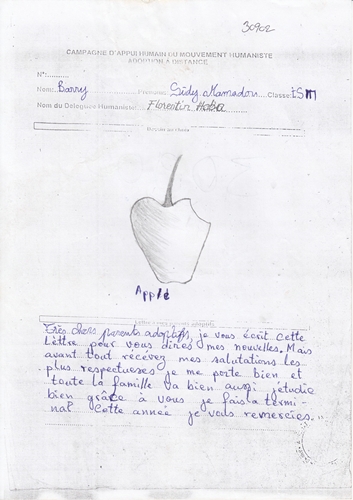 30902
CAMPAGNE D'APPUI HUMAIN DU MOUVEMENT HUMANISTE
ADOPTION A DISTANCE
N°:
Nom: Barry Prénoms: Sidy Mamadou Classe: TSM
Nom du Délégué Humaniste: Florentin
Dessin au choix
Apple
Très chers parents adoptifs, je vous écrit cette
Lettre pour vous dires mes nouvelles. Mais
avant tout recevez mes salutations les
plus respectueuses je me porte bien et
toute la famille va bien aussi j'étudie
bien grâce à vous je fais la termi-
nal cette année je vous remercies.